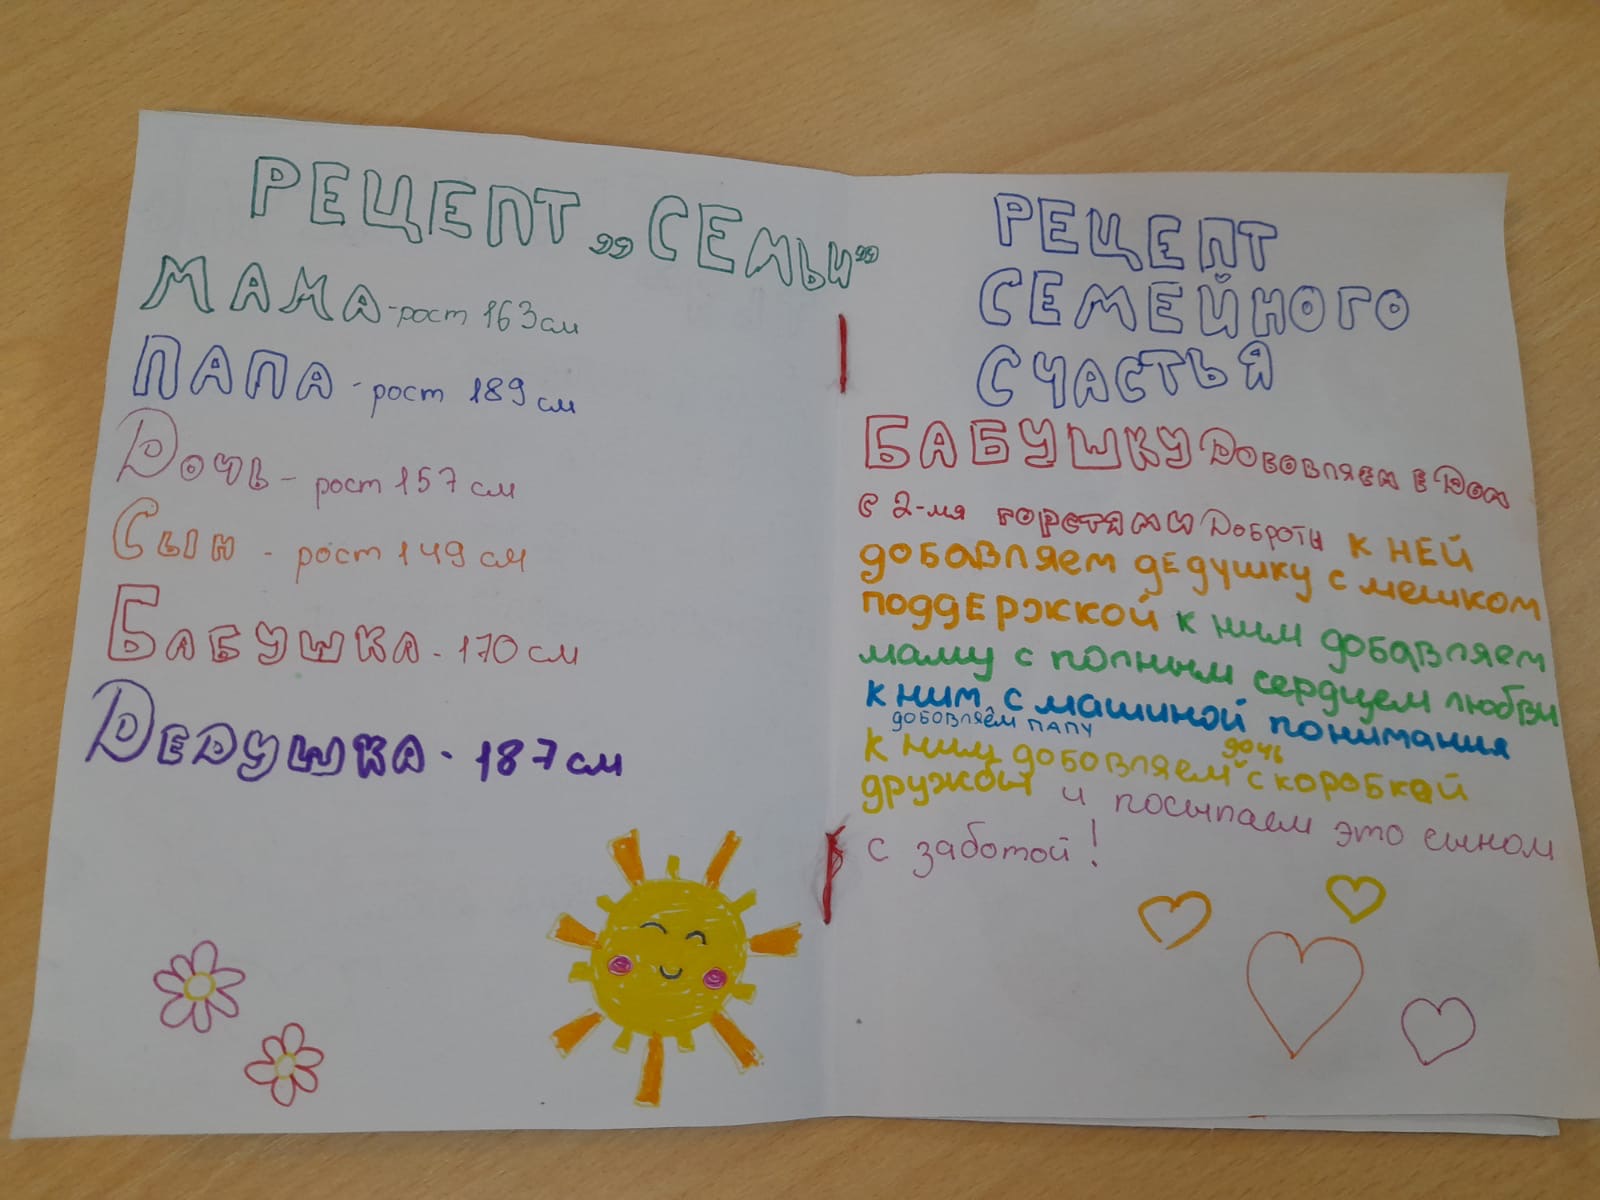 РЕЦЕПТ „СЕМЬИ“
МАМА - рост 163 см
ПАПА - рост 189 см
Дочь - рост 157 см
Сын - рост 149 см
БАБУШКА - 170 см
ДЕДУШКА - 187 см
РЕЦЕПТ
СЕМЕЙНОГО
СЧАСТЬЯ
БАБУШКУ Добовляем в Дом
с 2-мя горстями Доброты к ней
добавляем дедушку с мешком
поддержкой к ним добавляем
маму с полным сердцем любви
к ним с машиной понимания
добовляем папу
к ним добовляем дочь с коробкой
дружбы и посыпаем это сыном
с заботой!